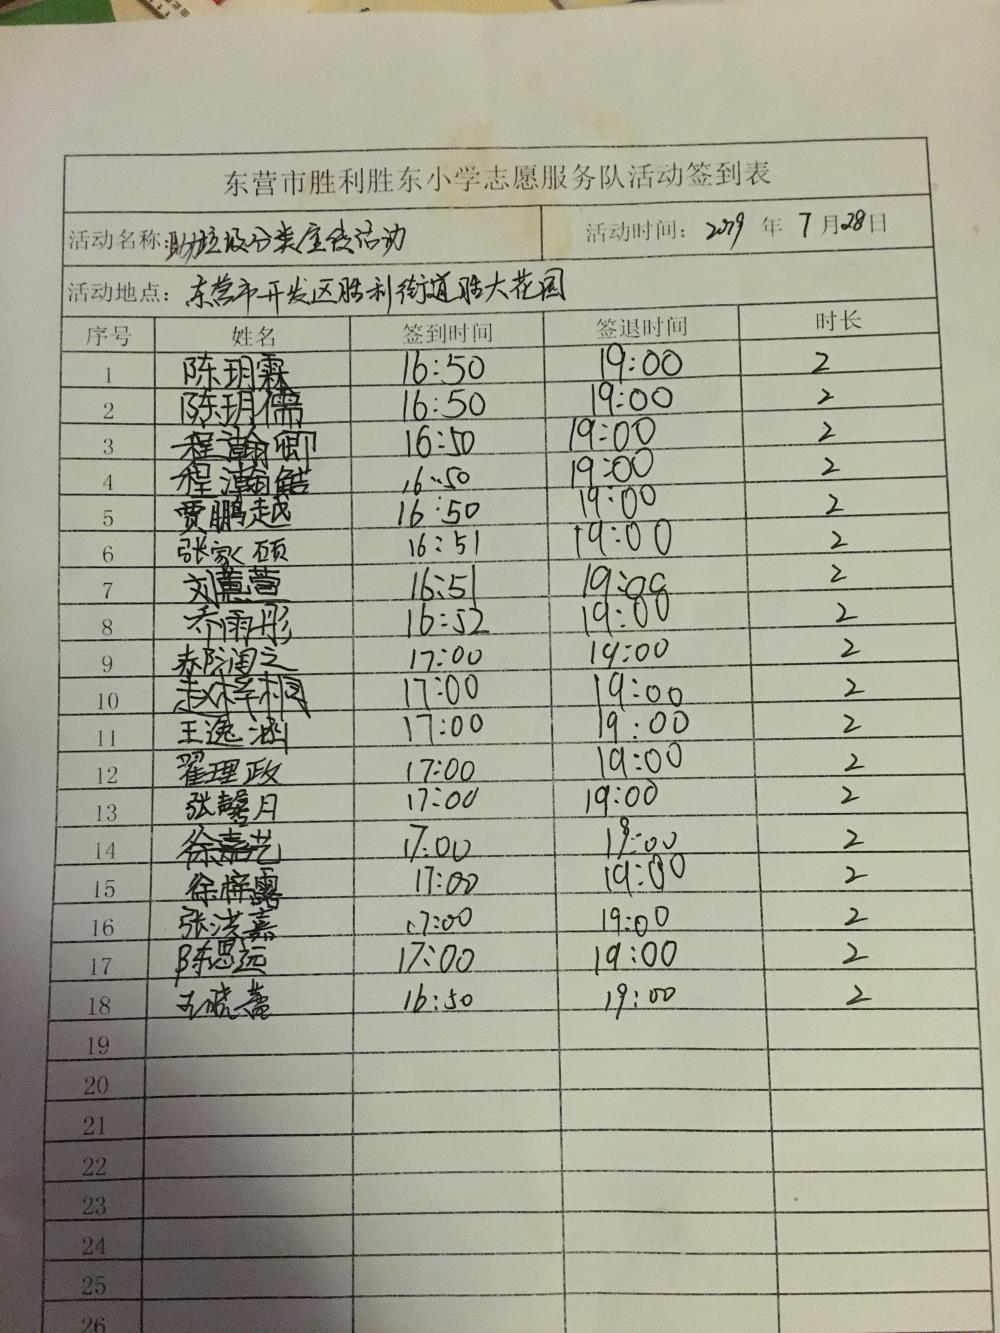 东营市胜利胜东小学志愿服务队活动签到表
活动名称:助垃圾分类宣传活动 活动时间: 2019 年 7 月 28 日
活动地点: 东营市开发区胜利街道胜大花园
序号 姓名 签到时间 签退时间 时长
1 陈玥霖 16:50 19:00 2
2 陈玥儒 16:50 19:00 2
3 程瀚卿 16:50 19:00 2
4 程瀚皓 16:50 19:00 2
5 贾鹏越 16:50 19:00 2
6 张家硕 16:51 19:00 2
7 刘慧萱 16:51 19:00 2
8 乔雨彤 16:52 19:00 2
9 17:00 19:00 2
10 赵梓桐 17:00 19:00 2
11 王逸涵 17:00 19:00 2
12 翟理政 17:00 19:00 2
13 张馨月 17:00 19:00 2
14 徐嘉艺 17:00 19:00 2
15 徐梓露 17:00 19:00 2
16 张洪嘉 17:00 19:00 2
17 陈思远 17:00 19:00 2
18 16:50 19:00 2
19
20
21
22
23
24
25
26